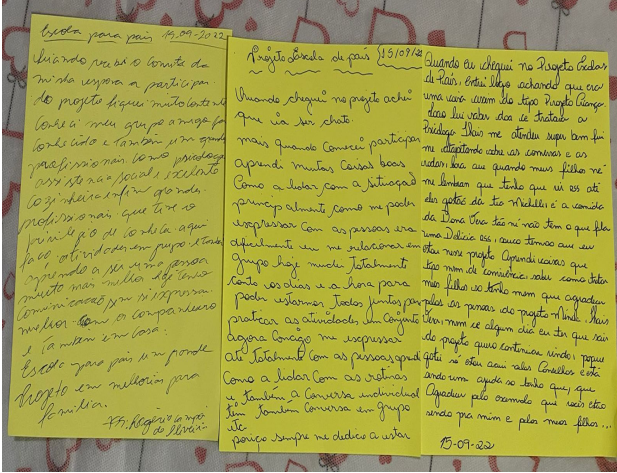 Escola para pais 15-09-2022
Quando recebi o convite da
minha esposa a participar
do projeto fiquei muito contente
conheci meu grupo amigo
conhecido e também um grande
profissionais como psicologa
assistencia social e excelente
cozinheira enfim grandes
profissionais que tive o
privilégio de conhecer aqui
faço atividades em grupo e
aprendo a ser uma pessoa
muito mais melhor hoje tenho
comunicação sem si expressar
melhor com o companheiro
e também em casa.
Escola para pais um grande
Projeto em melhorias para
família.
Rogério
de Oliveira
Projeto Escola de pais 15/09/22
Quando cheguei no projeto achei
que ia ser chato.
mais quando comecei participar
aprendi muitas coisas boas
Como a lidar com a situaçad
principalmente como me poder
expressar com as pessoas era
dificilmente eu me relacionar em
grupo hoje mudei totalmente
conto os dias e a hora para
poder estarmos todos juntos para
praticar as atividades em conjunto
agora consigo me expressar
até totalmente com as pessoas aprendi
Como a lidar com as rotinas
e também a conversa individual
têm também conversa em grupo
etc
sempre me dedico a estar
Quando eu cheguei no Projeto Escolas
de Pais, Entrei logo achando que era
uma coisa assim do tipo Projeto Criança.
logo fui saber dos se tratar a
Psicologa Thais me atendeu super bem fui
me adaptando sobre as conversas e as
que quando meus filhos
me lembram que tenho que ir eles até
eles gostão da tia e a comida
da Dona Vera tão ni não tem o que fala
uma Delicia eu
estou nesse projeto Aprendi coisas que
tipo de convivência saber como tratar
meus filhos só tenho mesmo que agradecer
pelas as pessoas do projeto Thais
Vera, nem se algum dia eu ter que sair
do projeto quero continuar vindo, porque
gostei de estar aqui Conselhos e esta
sendo uma ajuda so tenho que, que
Agradecer pelo que vocês estão
sendo pra mim e pelos meus filhos...
15-09-22